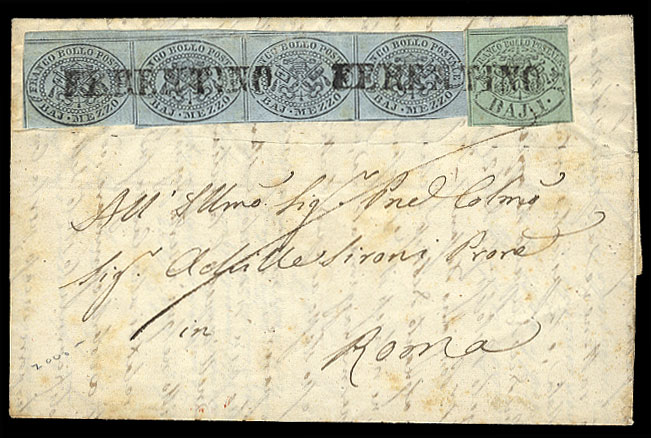 FRANCO BOLLO POSTALE FRANCO BOLLO POSTALE FRANCO BOLLO POSTALE FRANCO BOLLO POSTALE FRANCO BOLLO POSTALE
FERENTINO FERENTINO
BAJ. MEZZO BAJ. MEZZO BAJ. MEZZO BAJ. MEZZO BAJ. 1.
All' Illmo Sig. Pne Colmo
Sig. Achille Sironi Prore
in
Roma
2000